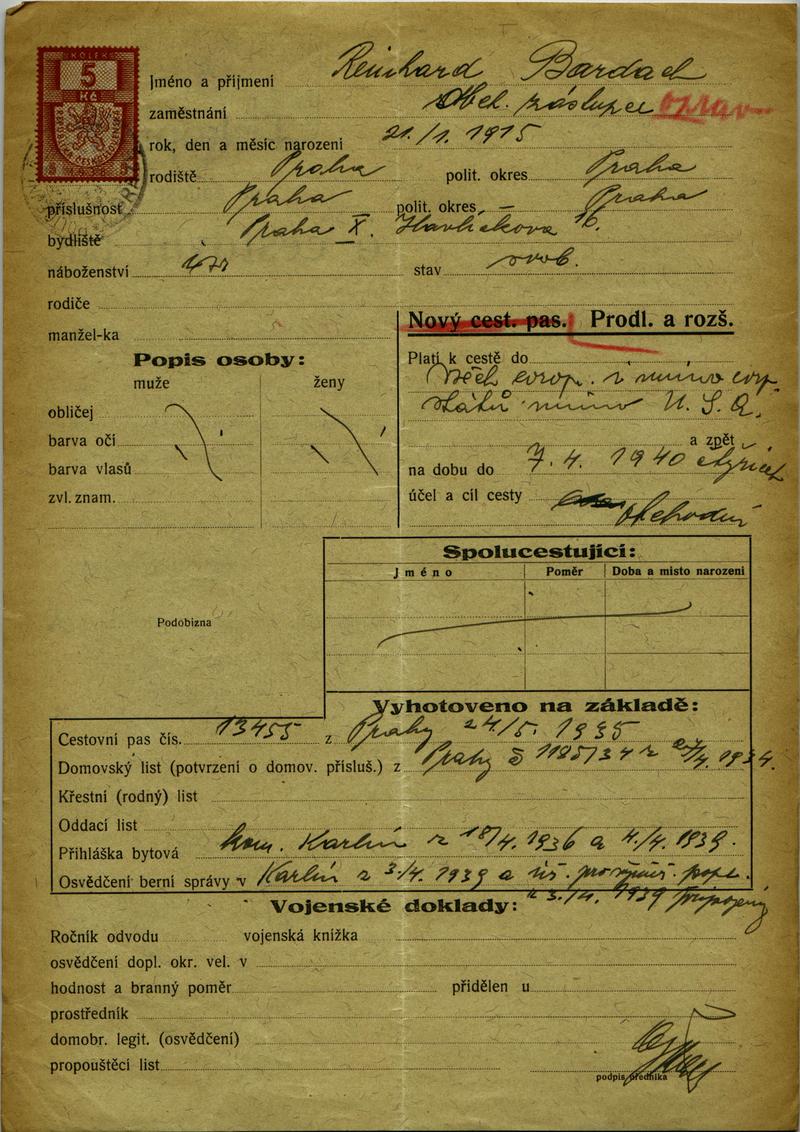 KOLEK
5
Kč
Jméno a příjmení Reinhard Bardach
zaměstnání Obch. zástupce oprav
rok, den a měsíc narození 21./1. 1915
rodiště Praha polit. okres Praha
příslušnost Praha polit. okres Praha
bydliště Praha X. Havlíčkova
náboženství stav svob.
rodiče
manžel-ka
Nový cest. pas. Prodl. a rozš.
Popis osoby:
muže ženy
obličej
barva očí
barva vlasů
zvl. znam.
Platí k cestě do
všech evrop. i mimo evp.
států mimo U. S. A.
a zpět
na dobu do 7. 4. 1940
účel a cíl cesty obchodní
Spolucestující:
Jméno Poměr Doba a místo narození
Podobizna
Vyhotoveno na základě:
Cestovní pas čís. 13455 z Prahy 24/5. 1935
Domovský list (potvrzení o domov. přísluš.) z Prahy 1934.
Křestní (rodný) list
Oddací list
Přihláška bytová kom. Karlín z 18/4. 1936 a 4./4. 1939.
Osvědčení berní správy v Karlín z 3./4. 1939 a
z 3./4. 1939 připojený
Vojenské doklady:
Ročník odvodu vojenská knížka
osvědčení dopl. okr. vel. v
hodnost a branný poměr přidělen u
prostředník
domobr. legit. (osvědčení)
propouštěcí list
podpis úředníka